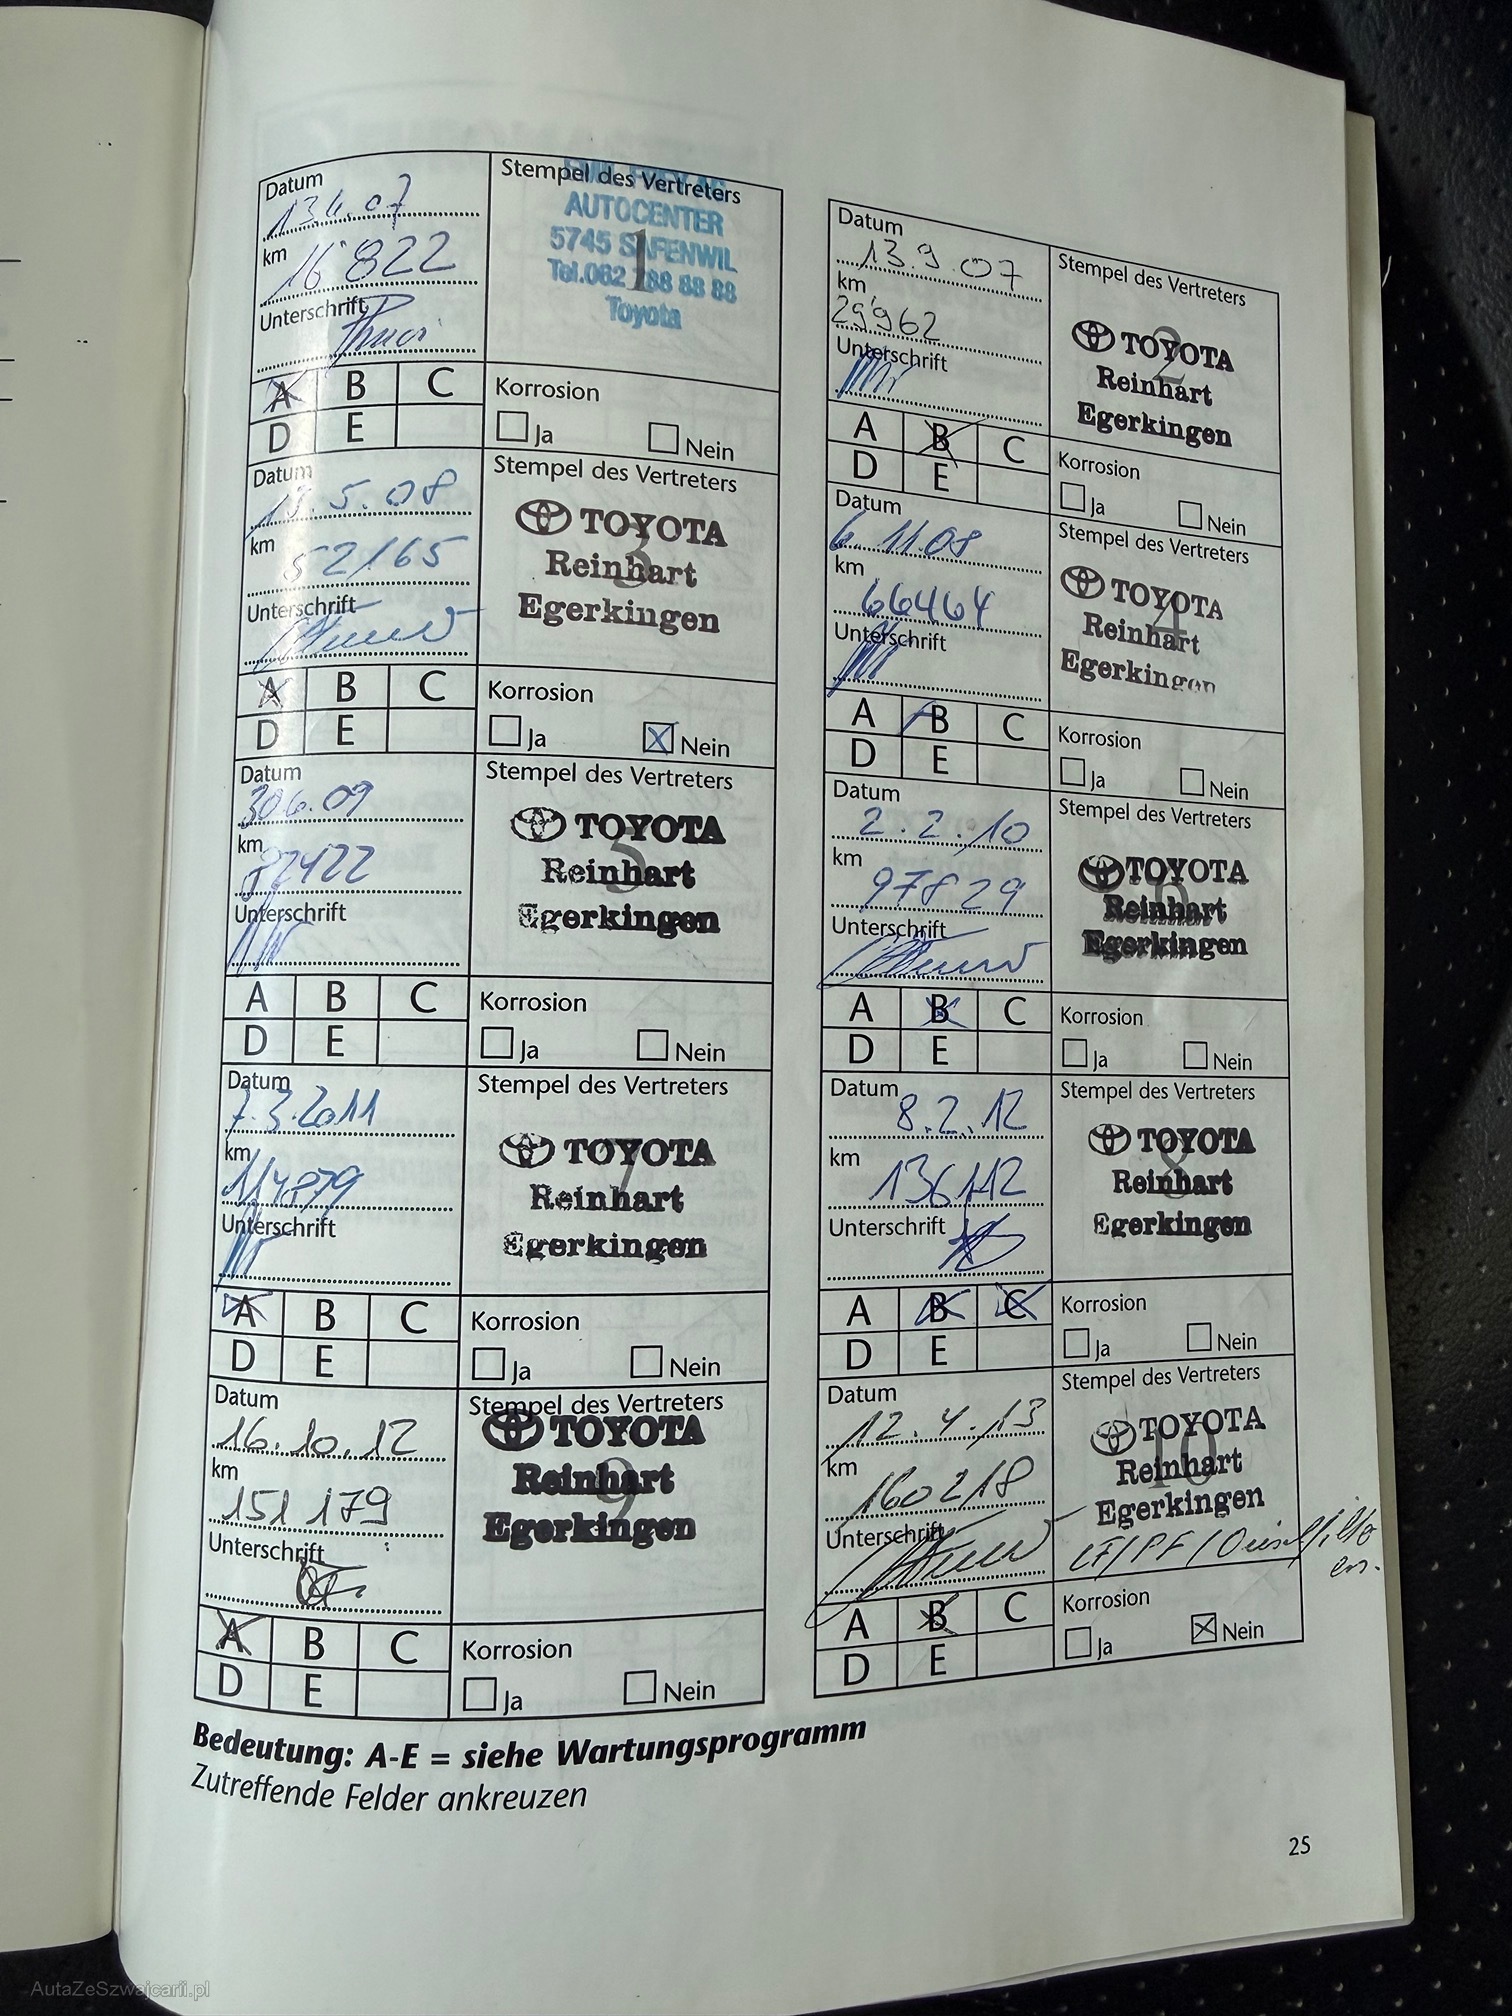 Datum
13.6.07
km
16'822
Unterschrift
Stempel des Vertreters
EMIL FREY AG
AUTOCENTER
5745 SAFENWIL
Tel.062 788 88 88
Toyota
1
A B C
D E
Korrosion
Ja Nein
Datum
13.9.07
km
29'962
Unterschrift
Stempel des Vertreters
2
TOYOTA
Reinhart
Egerkingen
A B C
D E
Korrosion
Ja Nein
Datum
.5.08
km
52165
Unterschrift
Stempel des Vertreters
3
TOYOTA
Reinhart
Egerkingen
A B C
D E
Korrosion
Ja Nein
Datum
6.11.08
km
66464
Unterschrift
Stempel des Vertreters
4
TOYOTA
Reinhart
Egerkingen
A B C
D E
Korrosion
Ja Nein
Datum
30.6.09
km
82422
Unterschrift
Stempel des Vertreters
5
TOYOTA
Reinhart
Egerkingen
A B C
D E
Korrosion
Ja Nein
Datum
2.2.10
km
97829
Unterschrift
Stempel des Vertreters
6
TOYOTA
Reinhart
Egerkingen
A B C
D E
Korrosion
Ja Nein
Datum
7.3.2011
km
114879
Unterschrift
Stempel des Vertreters
7
TOYOTA
Reinhart
Egerkingen
A B C
D E
Korrosion
Ja Nein
Datum
8.2.12
km
136112
Unterschrift
Stempel des Vertreters
8
TOYOTA
Reinhart
Egerkingen
A B C
D E
Korrosion
Ja Nein
Datum
16.10.12
km
151179
Unterschrift
Stempel des Vertreters
9
TOYOTA
Reinhart
Egerkingen
A B C
D E
Korrosion
Ja Nein
Datum
12.4.13
km
160218
Unterschrift
Stempel des Vertreters
10
TOYOTA
Reinhart
Egerkingen
LF/PF/Dieselfilter
ers.
A B C
D E
Korrosion
Ja Nein
Bedeutung: A-E = siehe Wartungsprogramm
Zutreffende Felder ankreuzen
25
AutaZeSzwajcarii.pl